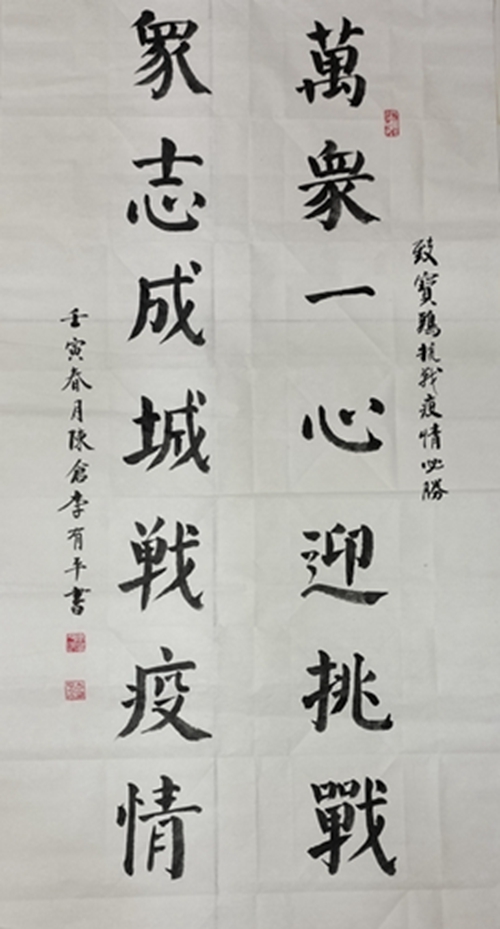 致寶鷄抗戰疫情必勝
萬衆一心迎挑戰
衆志成城戦疫情
壬寅春月陳倉李有平書